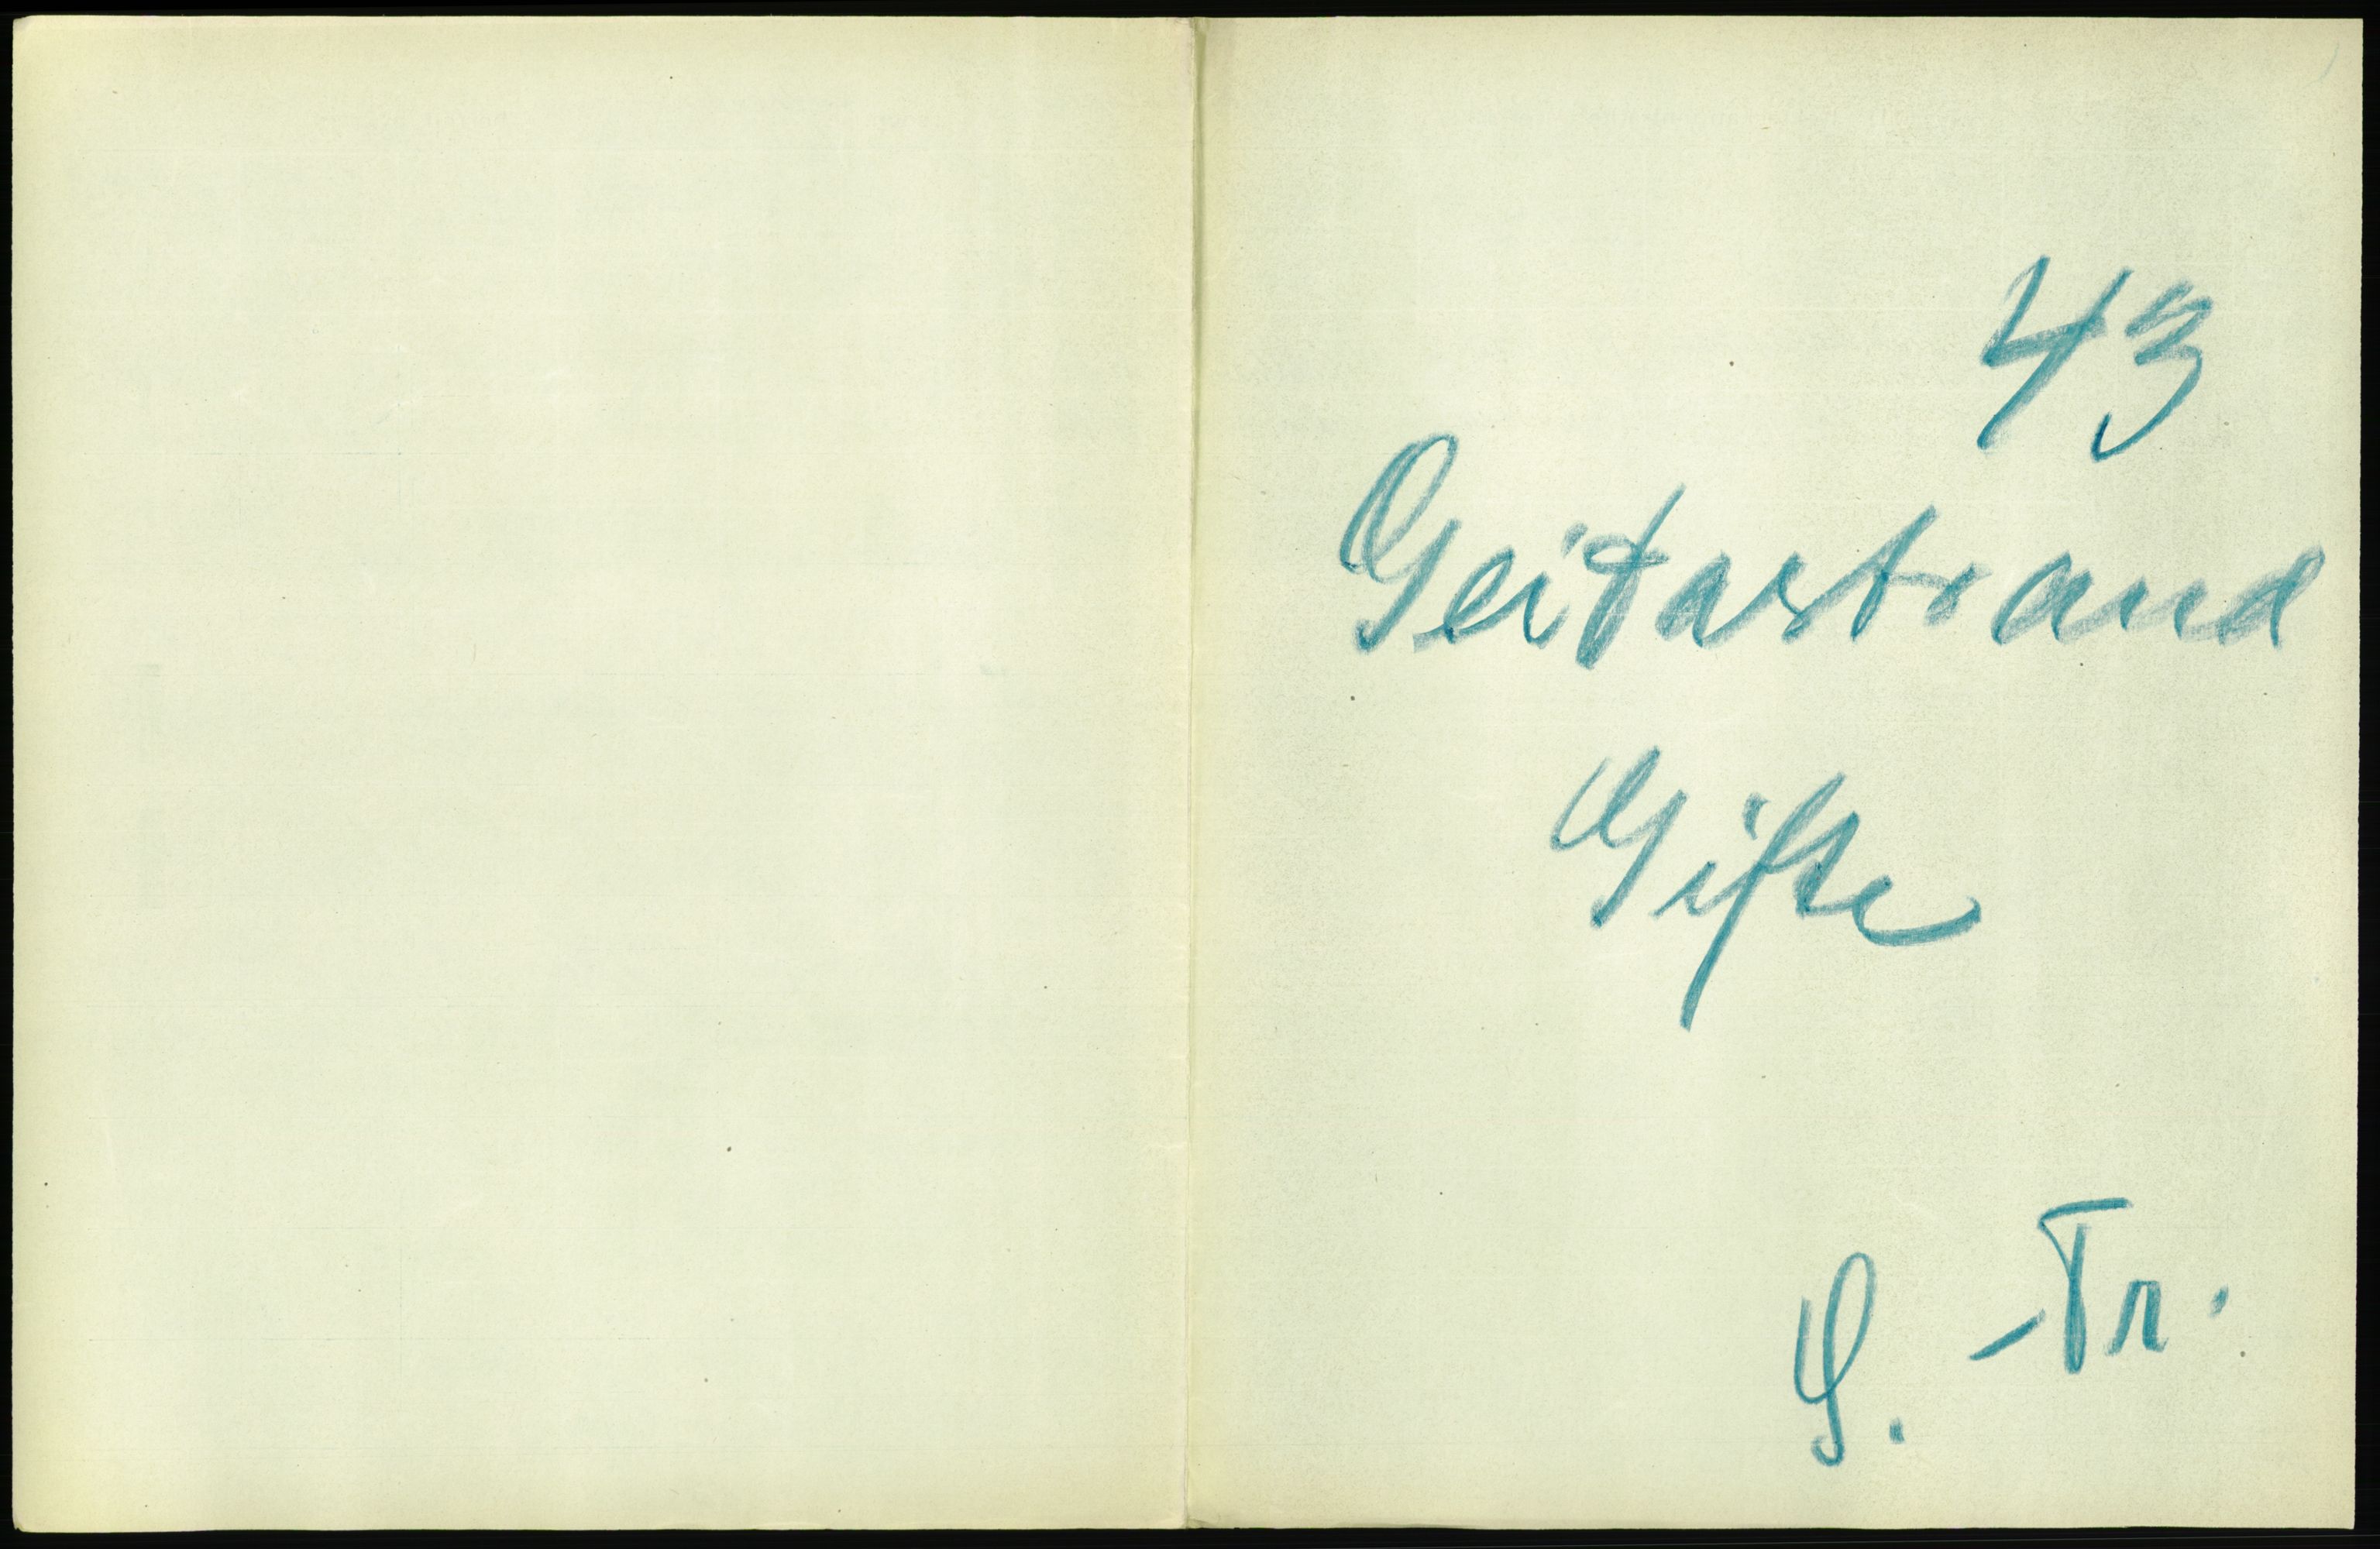 43
Geitastrand
Gifte
S. -Tr.